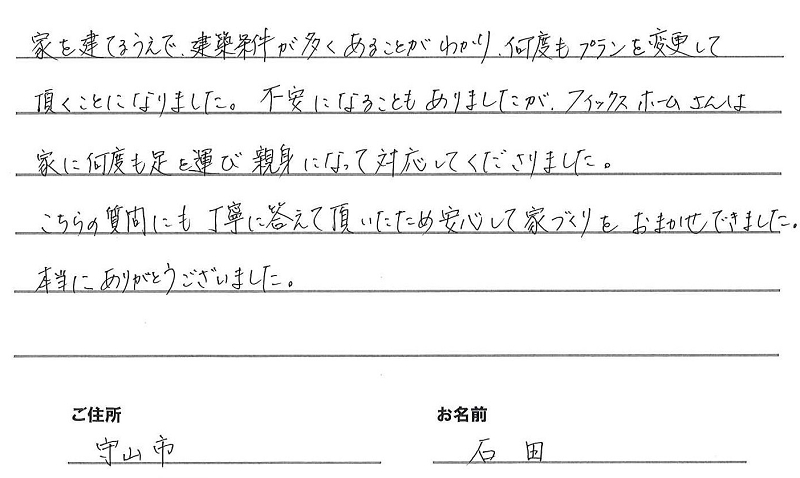 家を建てるうえで、建築条件が多くあることがわかり、何度もプランを変更して
頂くことになりました。不安になることもありましたが、フィックスホームさんは
家に何度も足を運び親身になって対応してくださりました。
こちらの質問にも丁寧に答えて頂いたため安心して家づくりをおまかせできました。
本当にありがとうございました。
ご住所 お名前
守山市 石田